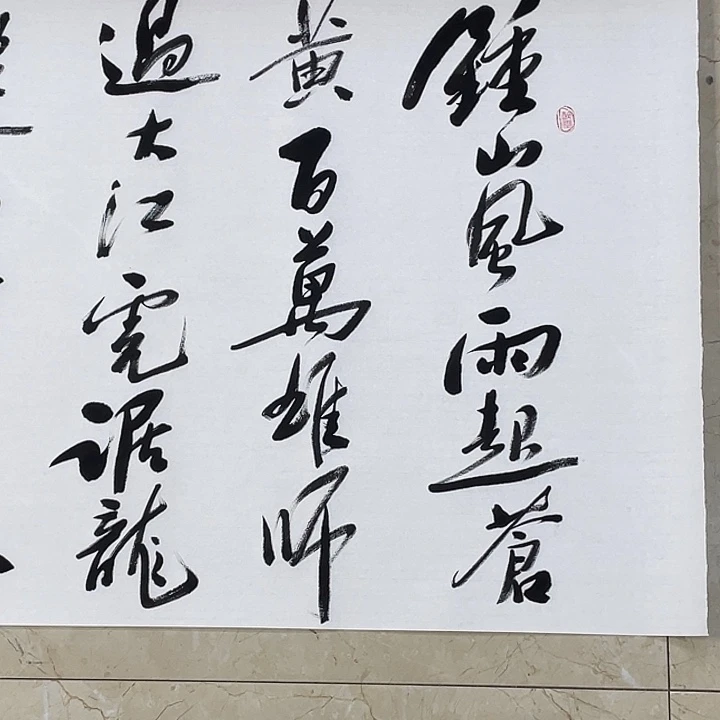 鍾山風雨起蒼
黃百萬雄師
過大江虎踞龍